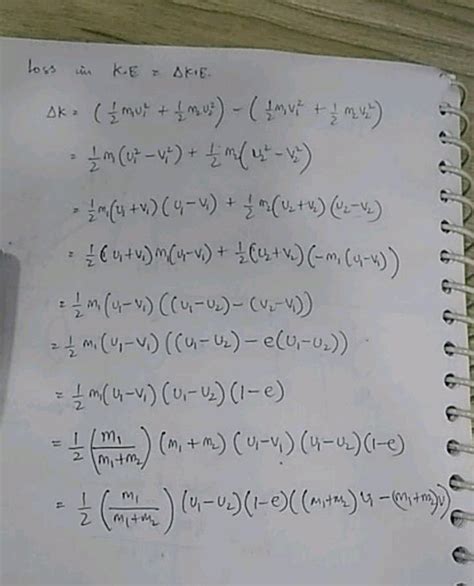 Loss in K.E = ΔK.E.
ΔK = (1/2 m₁u₁² + 1/2 m₂u₂²) - (1/2 m₁v₁² + 1/2 m₂v₂²)
= 1/2 m₁(u₁² - v₁²) + 1/2 m₂(u₂² - v₂²)
= 1/2 m₁(u₁+v₁)(u₁-v₁) + 1/2 m₂(u₂+v₂)(u₂-v₂)
= 1/2 (u₁+v₁) m₁(u₁-v₁) + 1/2 (u₂+v₂)(-m₁(u₁-v₁))
= 1/2 m₁(u₁-v₁)((u₁-u₂) - (v₂-v₁))
= 1/2 m₁(u₁-v₁)((u₁-u₂) - e(u₁-u₂))
= 1/2 m₁(u₁-v₁)(u₁-u₂)(1-e)
= 1/2 (m₁/(m₁+m₂))(m₁+m₂)(u₁-v₁)(u₁-u₂)(1-e)
= 1/2 (m₁/(m₁+m₂))(u₁-u₂)(1-e)((m₁+m₂)u₁ - (m₁+m₂)v₁)